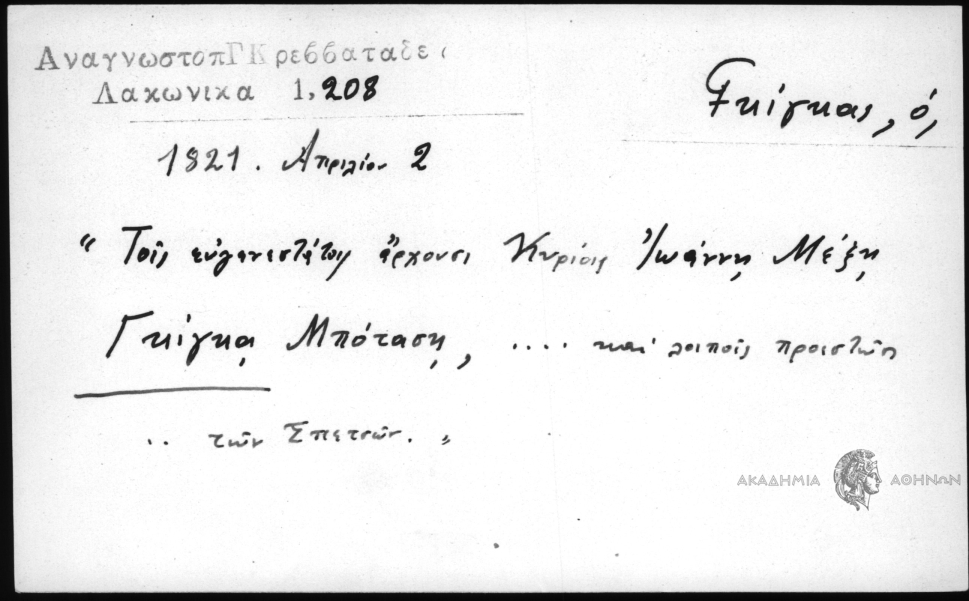 ΑναγνωστοπΓΚρεββαταδες
Λακωνικα 1,208
Γκίγκας, ὁ,
1821. Ἀπριλίου 2
"Τοῖς εὐγενεστάτοις ἄρχουσι Κυρίοις Ἰωάννῃ Μέξῃ
Γκίγκᾳ Μπότασῃ, .... καὶ λοιποῖς προεστῶσι
.. τῶν Σπετσῶν."
ΑΚΑΔΗΜΙΑ ΑΘΗΝΩΝ